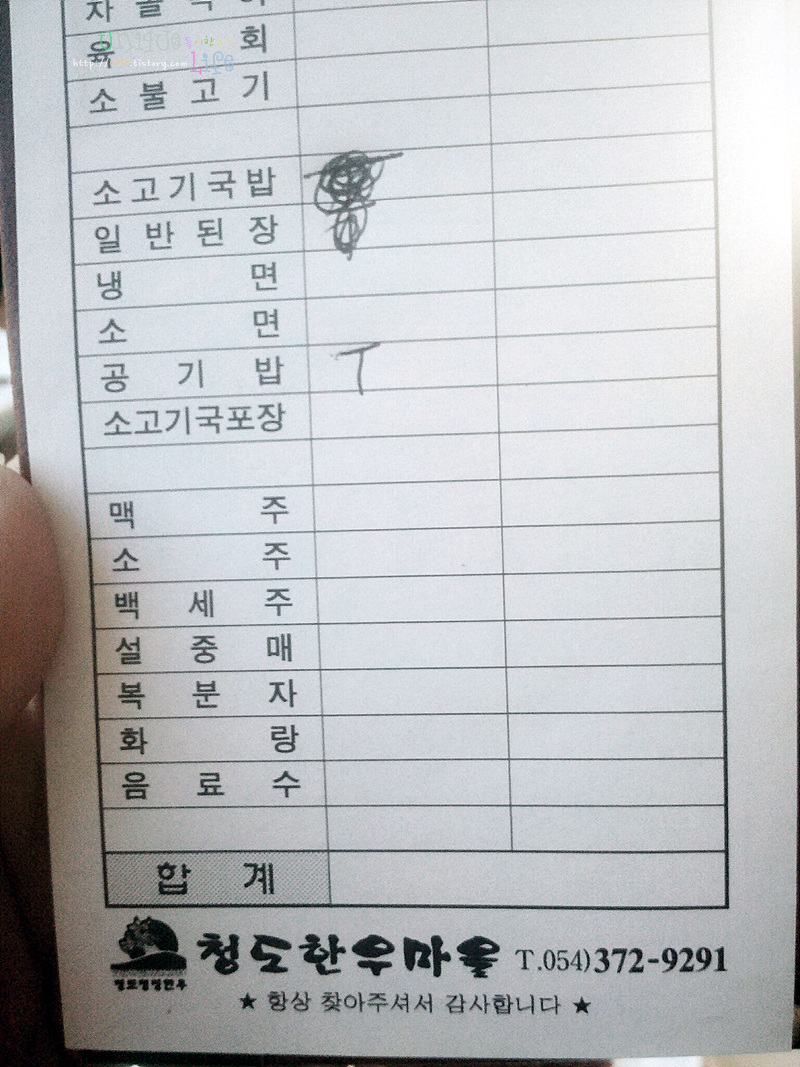 육 회
소 불 고 기
소고기국밥
일 반 된 장
냉 면
소 면
공 기 밥 T
소고기국포장
맥 주
소 주
백 세 주
설 중 매
복 분 자
화 랑
음 료 수
합 계
청도한우마을 T.054)372-9291
★ 항상 찾아주셔서 감사합니다 ★